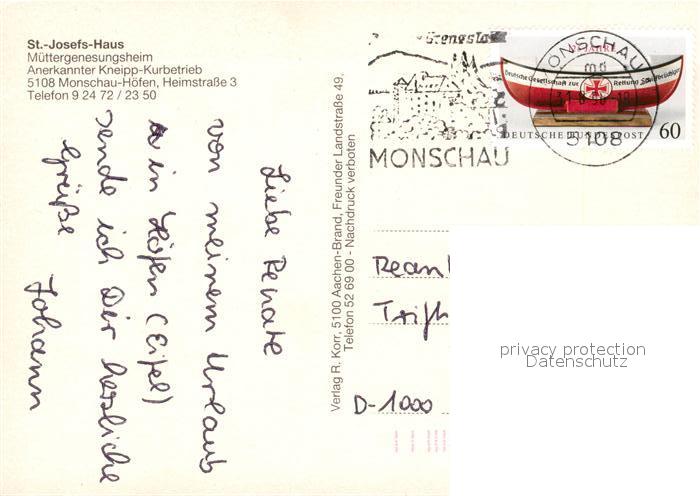 St.-Josefs-Haus
Müttergenesungsheim
Anerkannter Kneipp-Kurbetrieb
5108 Monschau-Höfen, Heimstraße 3
Telefon 9 24 72 / 23 50
Liebe Renate
von meinem Urlaub
in Höfen (Eifel)
sende ich Dir herzliche
Grüße
Johann
Verlag R. Korr, 5100 Aachen-Brand, Freunder Landstraße 49,
Telefon 52 69 00 - Nachdruck verboten
MONSCHAU
MONSCHAU
5108
Deutsche Gesellschaft zur Rettung Schiffbrüchiger
DEUTSCHE BUNDESPOST 60
D-1000
privacy protection
Datenschutz